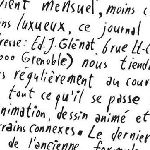 vient mensuel, moins c
ns luxueux, ce journal
resse: Ed. J. Glénat, 6 rue
000 Grenoble) nous tiend
s régulièrement au cour
tout ce qu'il se passe
nimation, dessin animé et
rains connexes. Le dernier
de l'ancienne formule